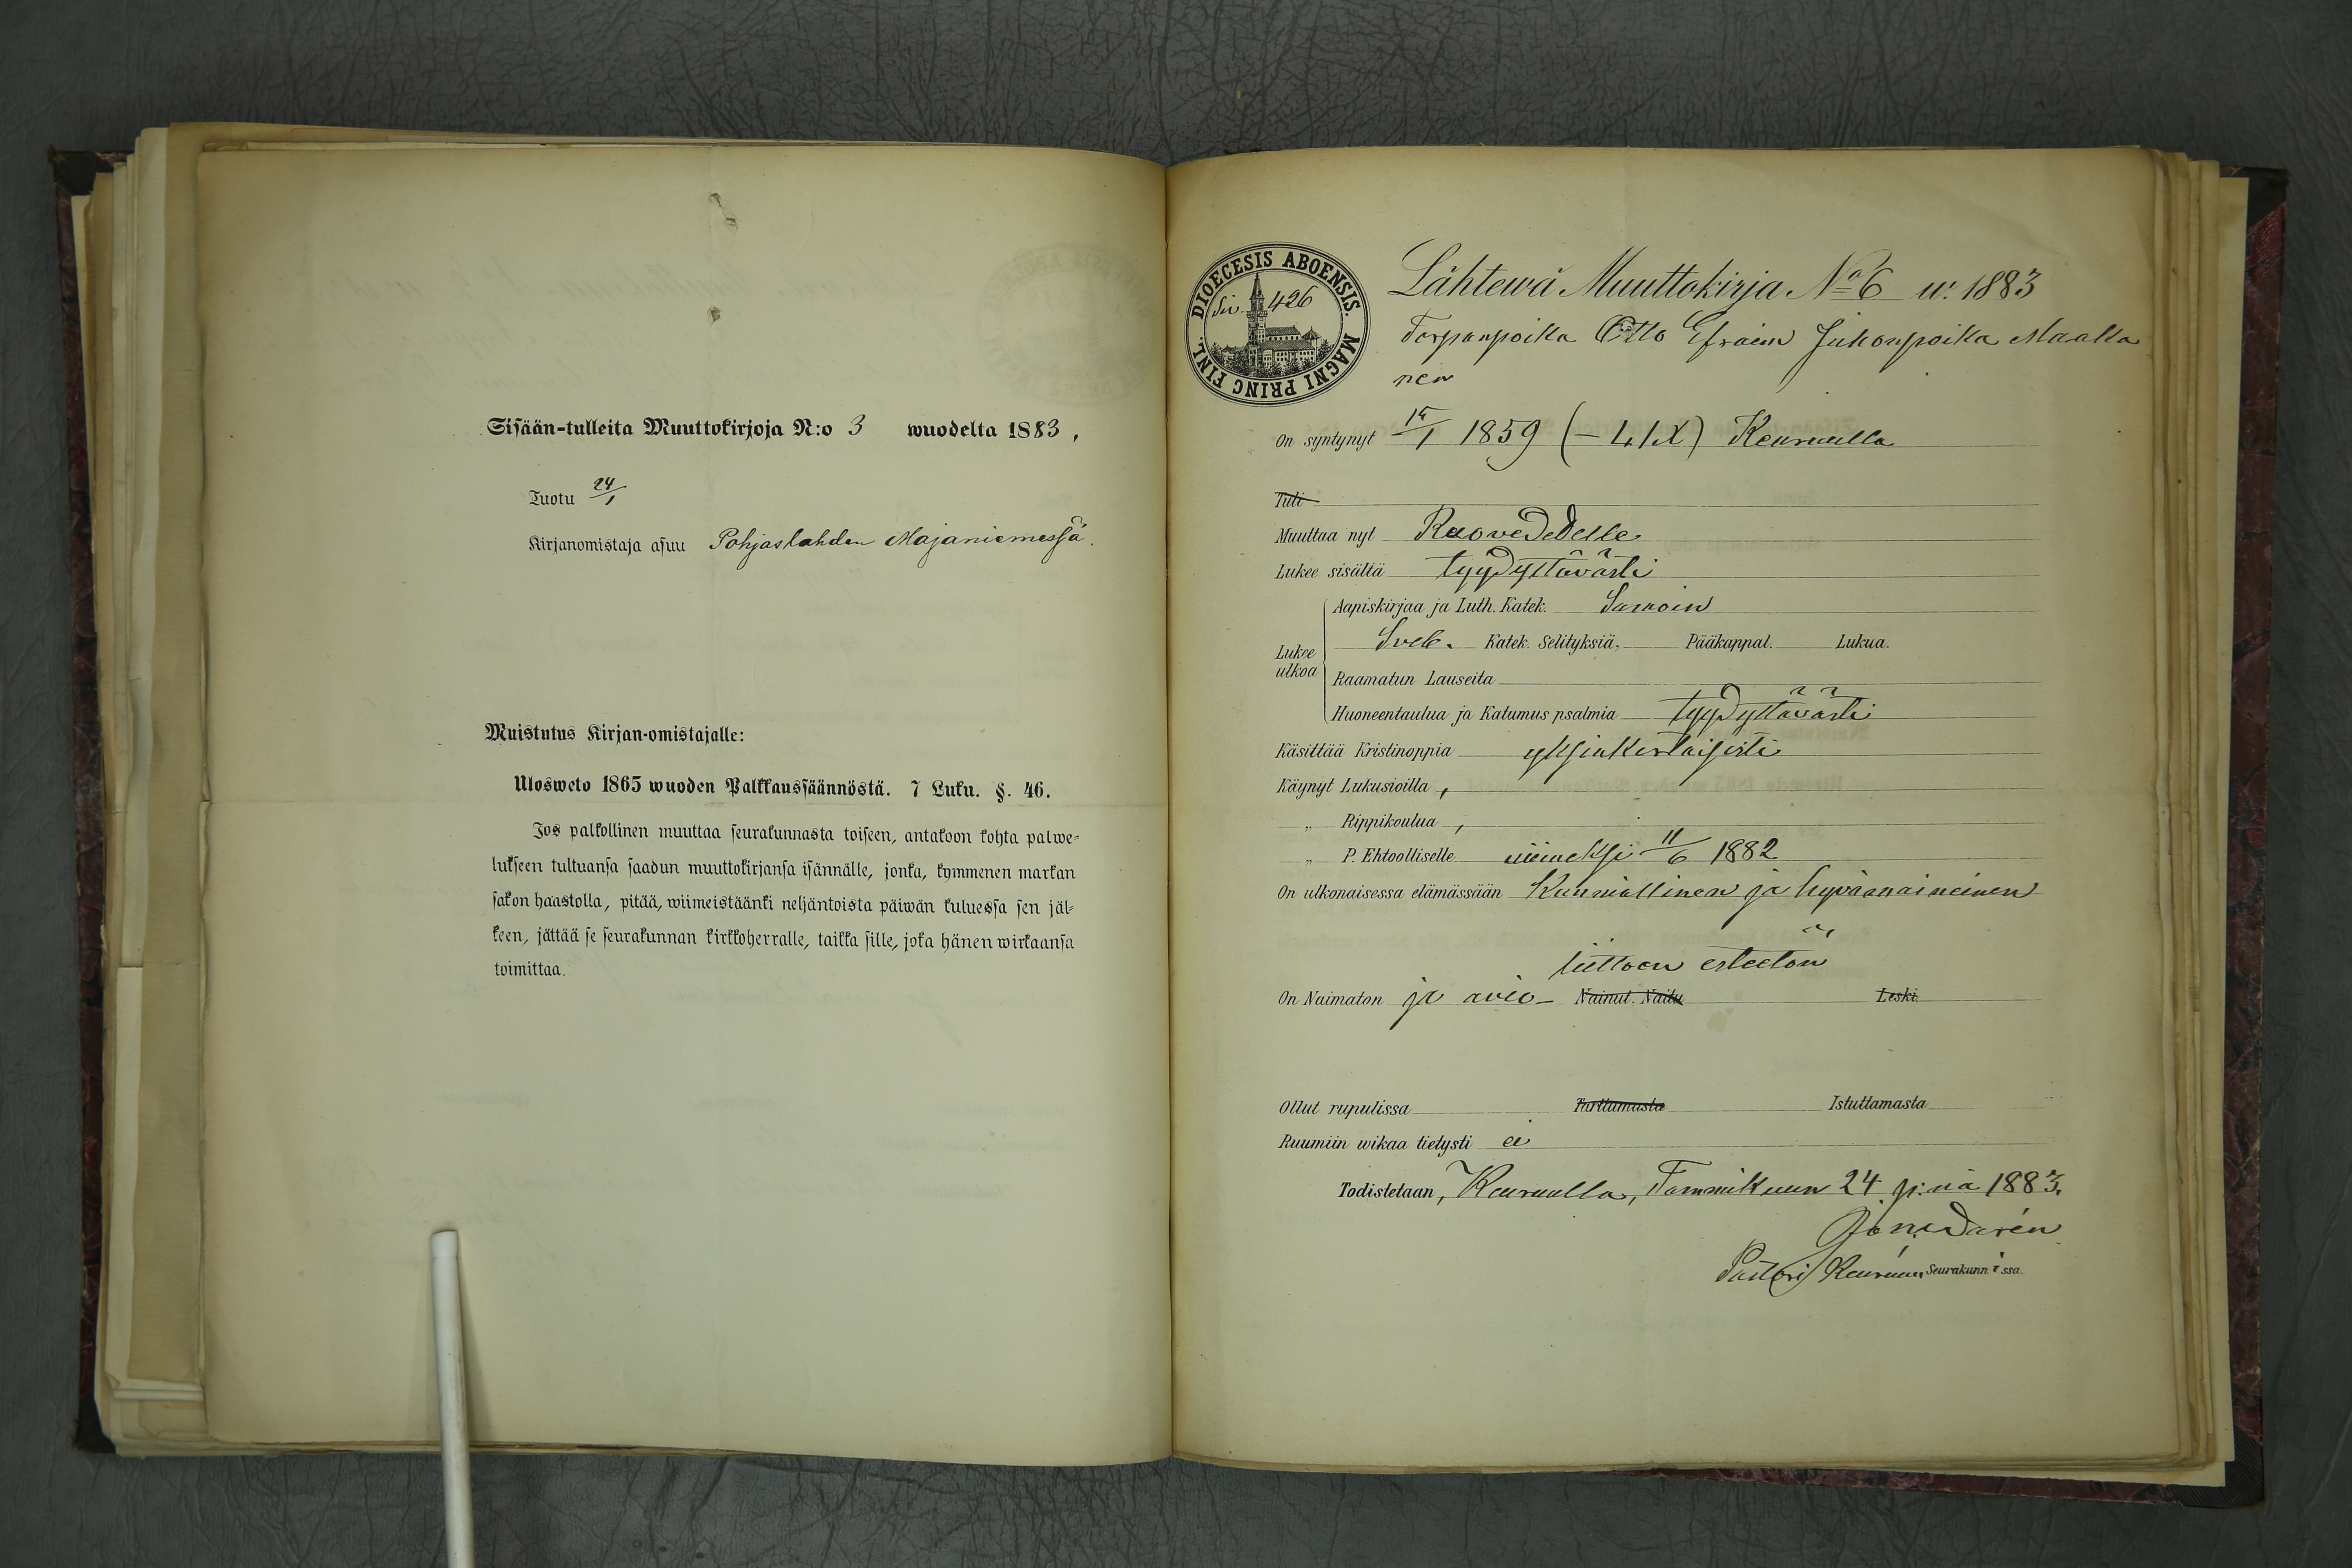 Sisään-tulleita Muuttokirjoja N:o 3 wuodelta 1883,
Tuotu 24/1
Kirjanomistaja asuu Pohjaslahden Majaniemessä.
Muistutus Kirjan-omistajalle:
Ulosweto 1865 wuoden Palkkaussäännöstä. 7 Luku. §. 46.
Jos palkollinen muuttaa seurakunnasta toiseen, antakoon kohta palwe-
lukseen tultuansa saadun muuttokirjansa isännälle, jonka, kymmenen markan
sakon haastolla, pitää, wiimeistäänki neljäntoista päiwän kuluessa sen jäl-
keen, jättää se seurakunnan kirkkoherralle, taikka sille, joka hänen wirkaansa
toimittaa.
DIOECESIS ABOENSIS. MAGNI PRINC FINL.
Siv. 426
Lähtewä Muuttokirja No 6 w. 1883
Torpanpoika Otto Efraim Juhonpoika Maaka
nen
On syntynyt 15/1 1859 (– L. / X) Keuruulla
Tuli
Muuttaa nyt Ruovedelle
Lukee sisältä tyydyttävästi
Aapiskirjaa ja Luth. Katek. Samoin
Lukee ulkoa
Sveb. Katek. Selityksiä, Pääkappal. Lukua.
Raamatun Lauseita
Huoneentaulua ja Katumus psalmia tyydyttävästi
Käsittää Kristinoppia yksinkertaisesti
Käynyt Lukusioilla,
„ Rippikoulua,
„ P. Ehtoolliselle viimeksi 11/6 1882
On ulkonaisessa elämässään Kunniallinen ja hyvämaineinen
liittoon esteetön
On Naimaton ja avio- Nainut. Naitu Leski.
Ollut rupulissa Tarttumasta Istuttamasta
Ruumiin wikaa tietysti ei
Todistetaan, Keuruulla, Tammikuun 24 p:nä 1883.
Pastori Keuruun Seurakunnissa.